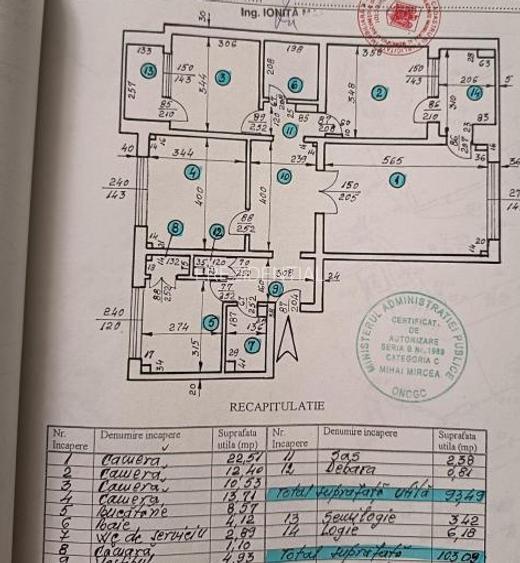 Ing. IONITA
30
133
306
198
355
28
63
150
143
150
143
206
5
257
13
344
3
208
6
348
2
310
14
85
210
89
252
120
25
85
11
86
210
83
23
40
344
239
565
36
240
143
4
400
10
400
150
205
1
88
252
8
12
14
20
132
35
120
70
308
24
9
240
120
88
252
77
252
274
5
187
7
87
204
315
17
34
29
41
20
MINISTERUL ADMINISTRATIEI PUBLICE
CERTIFICAT
DE
AUTORIZARE
SERIA B Nr. 1989
CATEGORIA C
MIHAI MIRCEA
ONCGC
RECAPITULATIE
Nr. Incapere Denumire incapere Suprafata utila (mp) Nr. Incapere Denumire incapere Suprafata utila (mp)
1 Camera 22,51 11 Sas 2,38
2 Camera 12,40 12 Debara 0,81
3 Camera 10,53
4 Camera 13,71 Total suprafată utilă 93,49
5 Bucătărie 8,57
6 Baie 4,12 13 Semilogie 3,42
7 Wc de serviciu 2,89 14 Logie 6,18
8 Cămara 1,10 Total suprafată 103,09
9 4,93